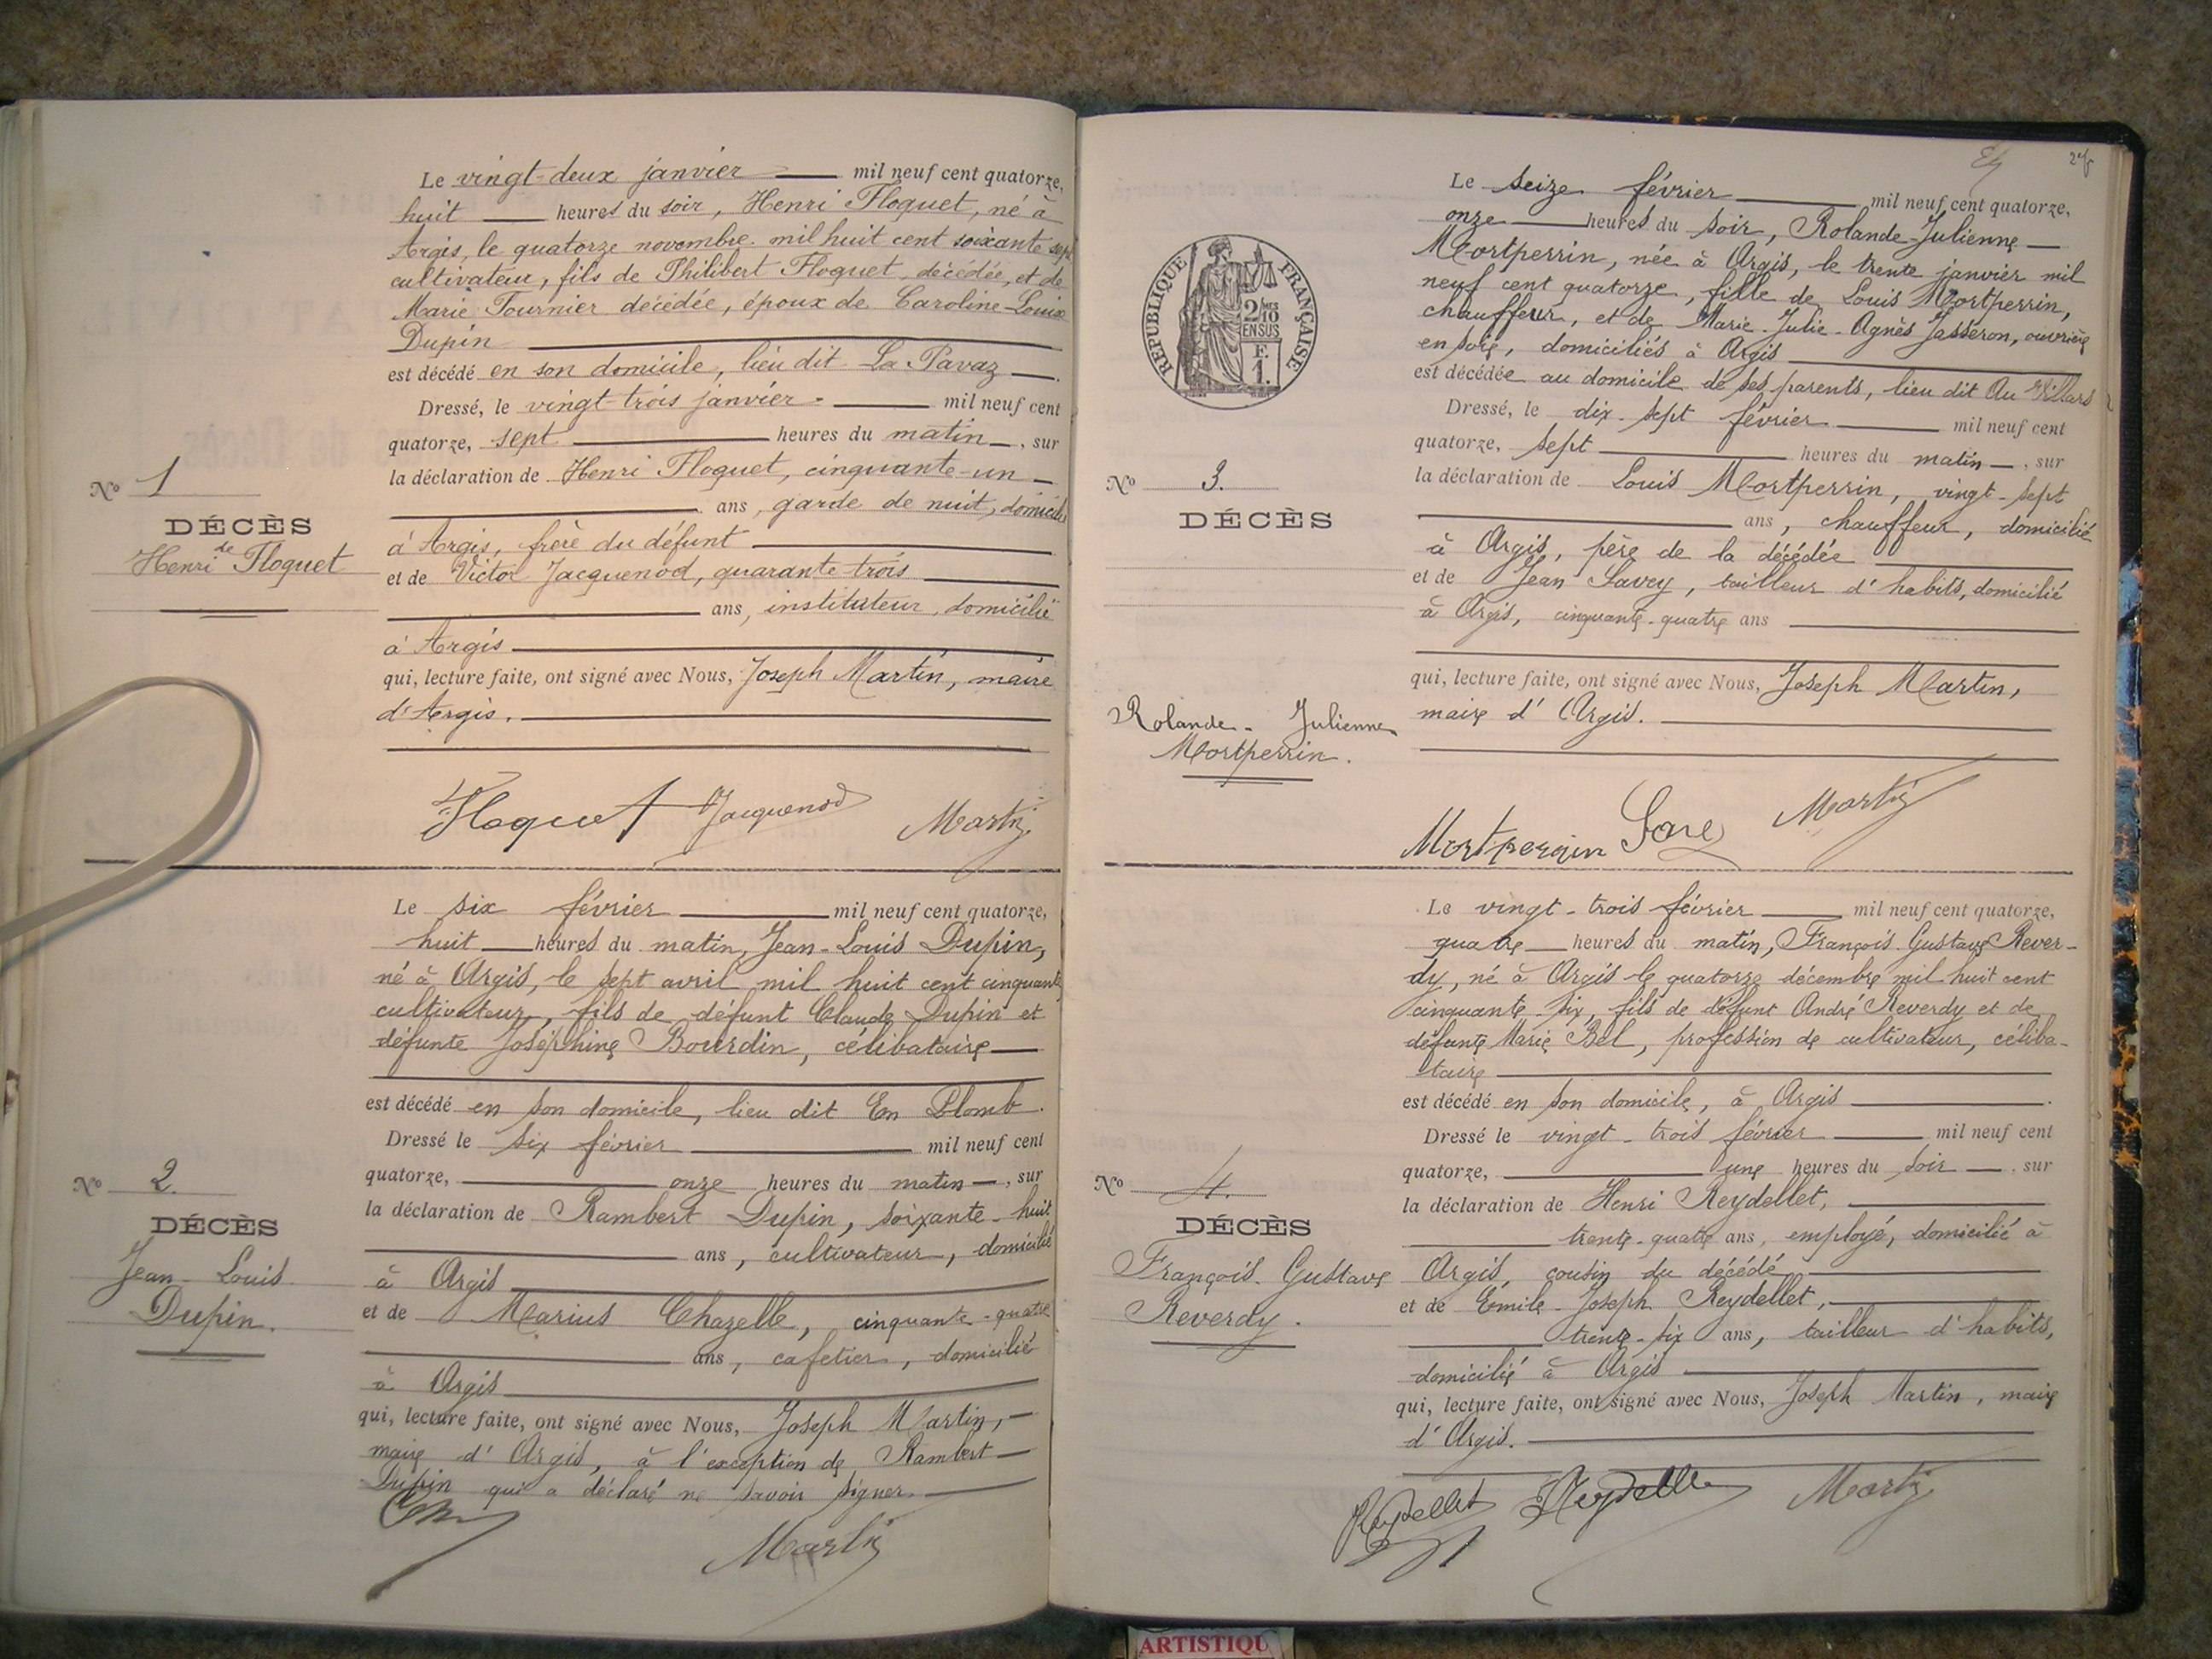 Le vingt-deux janvier mil neuf cent quatorze,
huit heures du soir, Henri Floquet, né à
Argis, le quatorze novembre mil huit cent soixante sept
cultivateur, fils de Philibert Floquet décédée, et de
Marie Tournier décédée, époux de Caroline-Louise
Dupin
est décédé en son domicile, lieu dit La Pavaz
Dressé, le vingt-trois janvier mil neuf cent
quatorze, sept heures du matin, sur
la déclaration de Henri Floquet, cinquante-un
ans, garde de nuit, domicilié
à Argis, frère du défunt
et de Victor Jacquenod, quarante-trois
ans, instituteur, domicilié
à Argis
qui, lecture faite, ont signé avec Nous, Joseph Martin, maire
d'Argis.
No 1
DÉCÈS
de
Henri Floquet
Floquet Jacquenod Martin
Le six février mil neuf cent quatorze,
huit heures du matin, Jean-Louis Dupin,
né à Argis, le sept avril mil huit cent cinquante
cultivateur, fils de défunt Claude Dupin et
défunte Joséphine Bourdin, célibataire
est décédé en son domicile, lieu dit En Plomb.
Dressé le six février mil neuf cent
quatorze, onze heures du matin, sur
la déclaration de Rambert Dupin, soixante-huit
ans, cultivateur, domicilié
à Argis
et de Marius Chazelle, cinquante-quatre
ans, cafetier, domicilié
à Argis
qui, lecture faite, ont signé avec Nous, Joseph Martin,
maire d'Argis, à l'exception de Rambert
Dupin qui a déclaré ne savoir signer.
No 2.
DÉCÈS
Jean-Louis
Dupin.
Martin
Le seize février mil neuf cent quatorze,
onze heures du soir, Rolande-Julienne
Mortperrin, née à Argis, le trente janvier mil
neuf cent quatorze, fille de Louis Mortperrin,
chauffeur, et de Marie-Julie-Agnès Jasseron, ouvrière
en soie, domiciliés à Argis
est décédée au domicile de ses parents, lieu dit Au Villars
Dressé, le dix-sept février mil neuf cent
quatorze, sept heures du matin, sur
la déclaration de Louis Mortperrin, vingt-sept
ans, chauffeur, domicilié
à Argis, père de la décédée
et de Jean Savey, tailleur d'habits, domicilié
à Argis, cinquante-quatre ans
qui, lecture faite, ont signé avec Nous, Joseph Martin,
maire d'Argis.
RÉPUBLIQUE FRANÇAISE
2/10MES
EN SUS
F.
1.
No 3.
DÉCÈS
Rolande-Julienne
Mortperrin.
Mortperrin Martin
Le vingt-trois février mil neuf cent quatorze,
quatre heures du matin, François-Gustave Rever-
dy, né à Argis le quatorze décembre mil huit cent
cinquante-six, fils de défunt André Reverdy et de
défunte Marie Bel, profession de cultivateur, céliba-
taire
est décédé en son domicile, à Argis.
Dressé le vingt-trois février mil neuf cent
quatorze, une heures du soir, sur
la déclaration de Henri Reydellet,
trente-quatre ans, employé, domicilié à
Argis, cousin du décédé
et de Emile-Joseph Reydellet,
trente-six ans, tailleur d'habits,
domicilié à Argis
qui, lecture faite, ont signé avec Nous, Joseph Martin, maire
d'Argis.
No 4.
DÉCÈS
François-Gustave
Reverdy.
Reydellet Reydellet Martin
ARTISTIQU